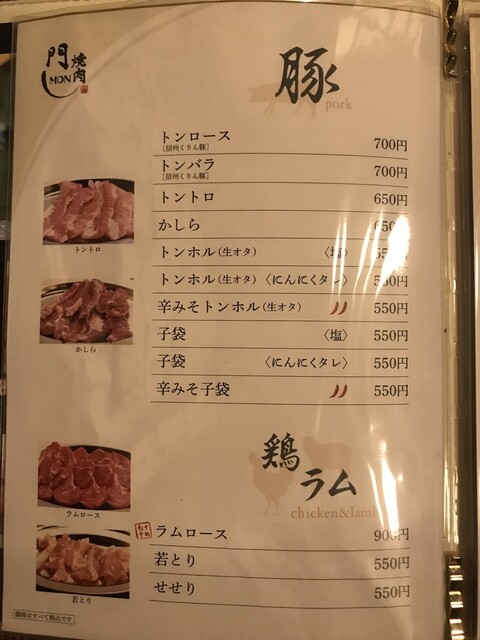 焼肉
門
MON
豚
pork
トンロース 700円
[信州くりん豚]
トンバラ 700円
[信州くりん豚]
トントロ 650円
かしら 650円
トンホル(生オタ) 〈塩〉 550円
トンホル(生オタ) 〈にんにくタレ〉 550円
辛みそトンホル(生オタ) 550円
子袋 〈塩〉 550円
子袋 〈にんにくタレ〉 550円
辛みそ子袋 550円
トントロ
かしら
鶏
ラム
chicken&lamb
ラムロース 900円
若とり 550円
せせり 550円
ラムロース
若とり
価格はすべて税込です